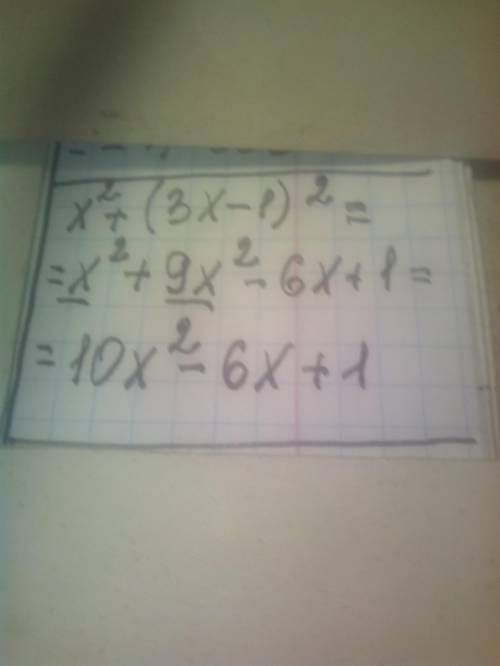 x² + (3x - 1)² =
= x² + 9x² - 6x + 1 =
= 10x² - 6x + 1